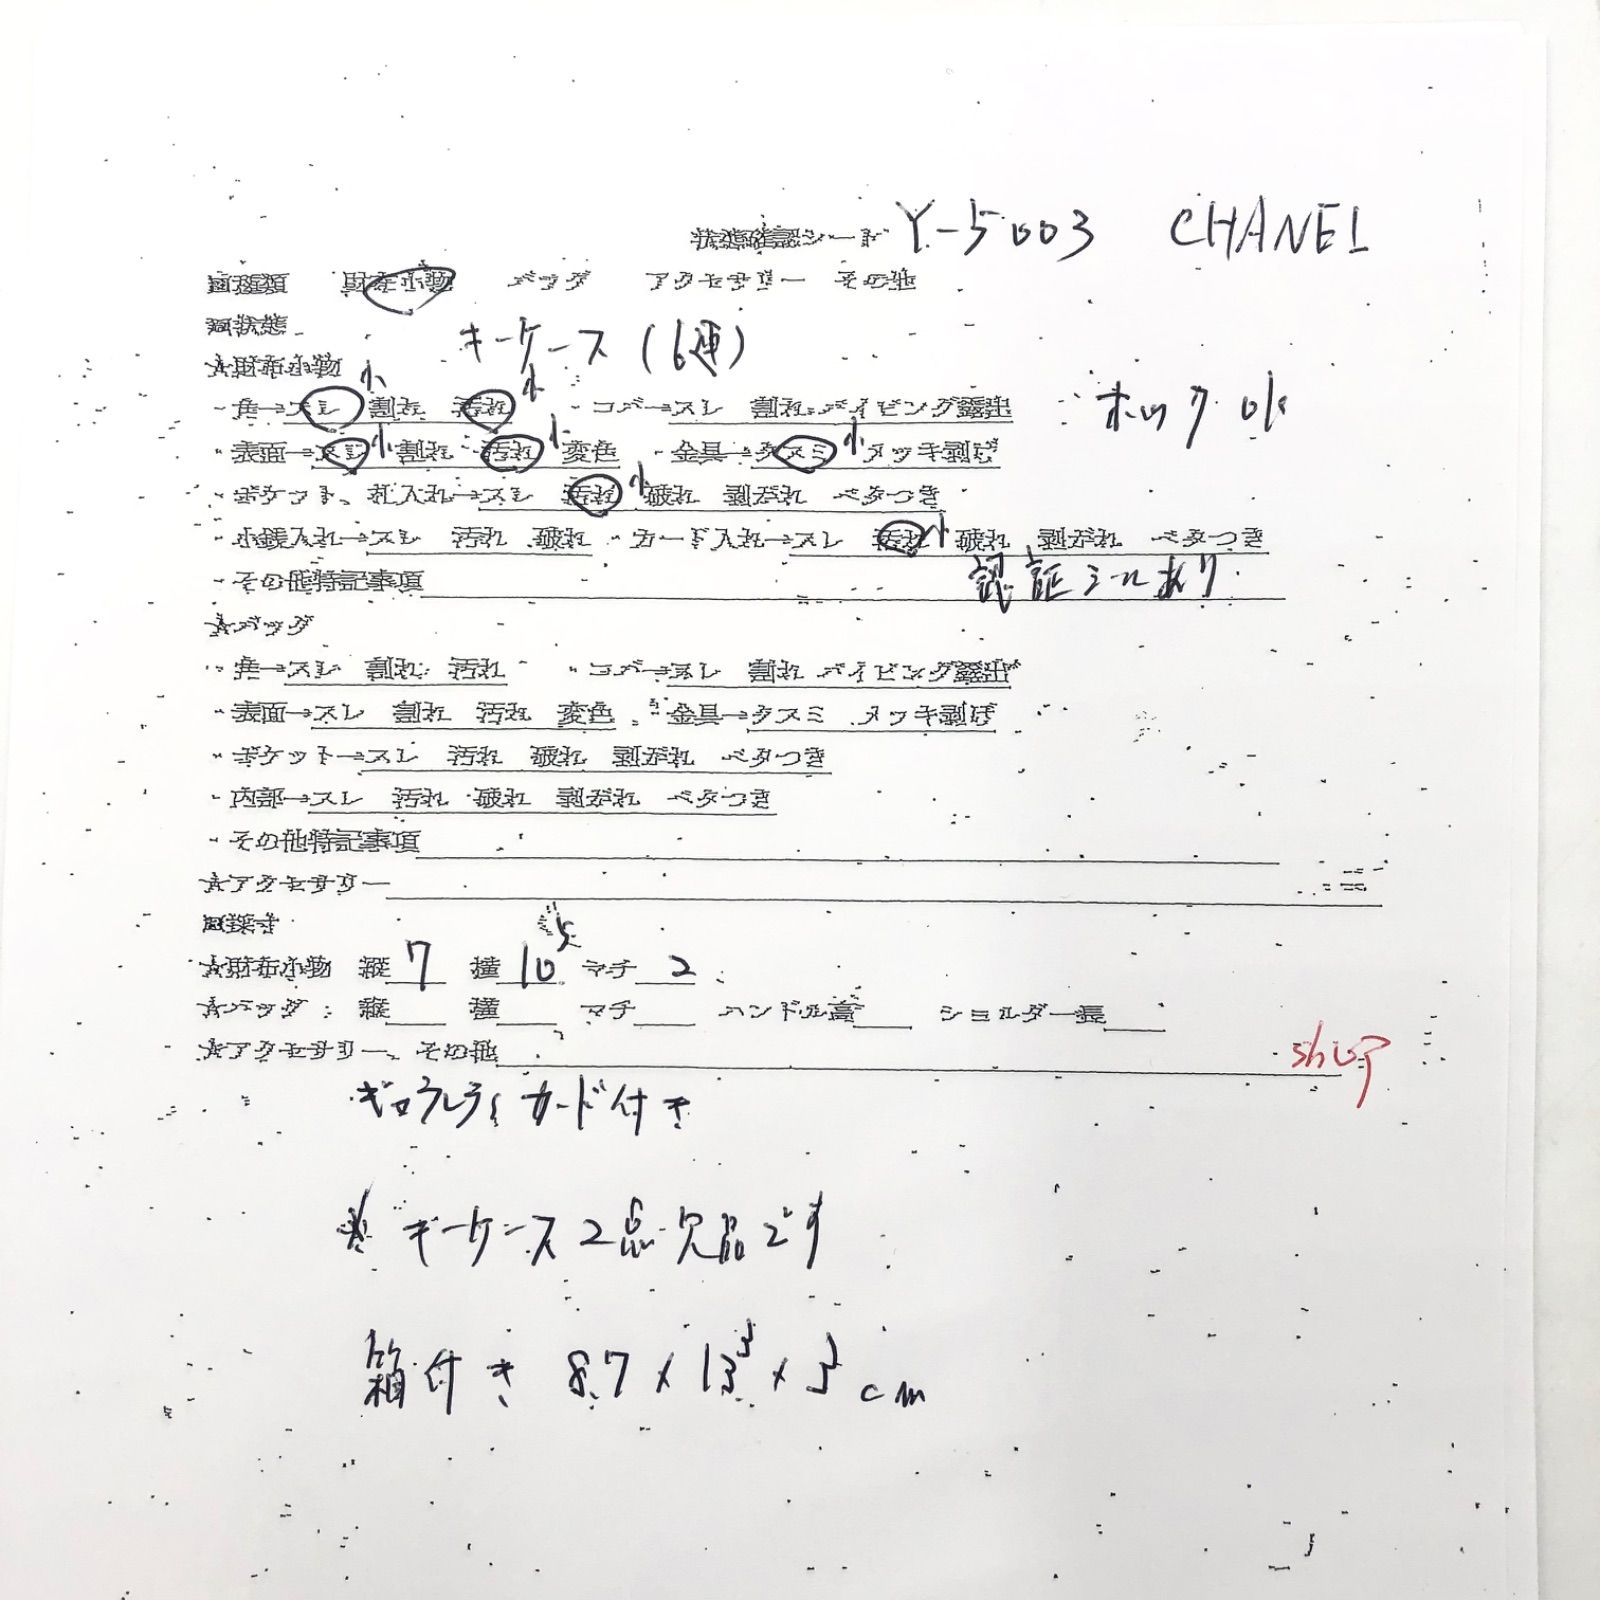 状態確認シート Y-5003 CHANEL
■種類 財布小物 バッグ アクセサリー その他
■状態
キーケース(6連)
★財布小物
・角→スレ 小 割れ 汚れ 小 ・コバ→スレ 割れ パイピング露出 ホック ok
・表面→スレ 小 割れ 汚れ 小 変色 ・金具→クスミ 小 メッキ剥げ
・ポケット、札入れ→スレ 汚れ 小 破れ 剥がれ ベタつき
・小銭入れ→スレ 汚れ 破れ ・カード入れ→スレ 汚れ 小 破れ 剥がれ ベタつき
・その他特記事項 認証シールあり
★バッグ
・角→スレ 割れ 汚れ ・コバ→スレ 割れ パイピング露出
・表面→スレ 割れ 汚れ 変色 ・金具→クスミ メッキ剥げ
・ポケット→スレ 汚れ 破れ 剥がれ ベタつき
・内部→スレ 汚れ 破れ 剥がれ ベタつき
・その他特記事項
★アクセサリー
■採寸
★財布小物 縦 7 横 10.5 マチ 2
★バッグ 縦 横 マチ ハンドル高 ショルダー長
★アクセサリー、その他
shop
ギャランティカード付き
※キーケース2点欠品です
箱付き 8.7 x 13.5 x 3 cm